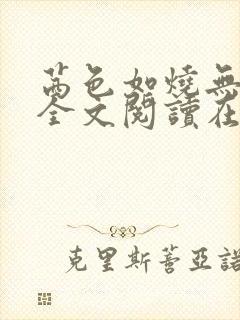 茜色如燒無
全文閱讀在
克里斯蒂亞諾